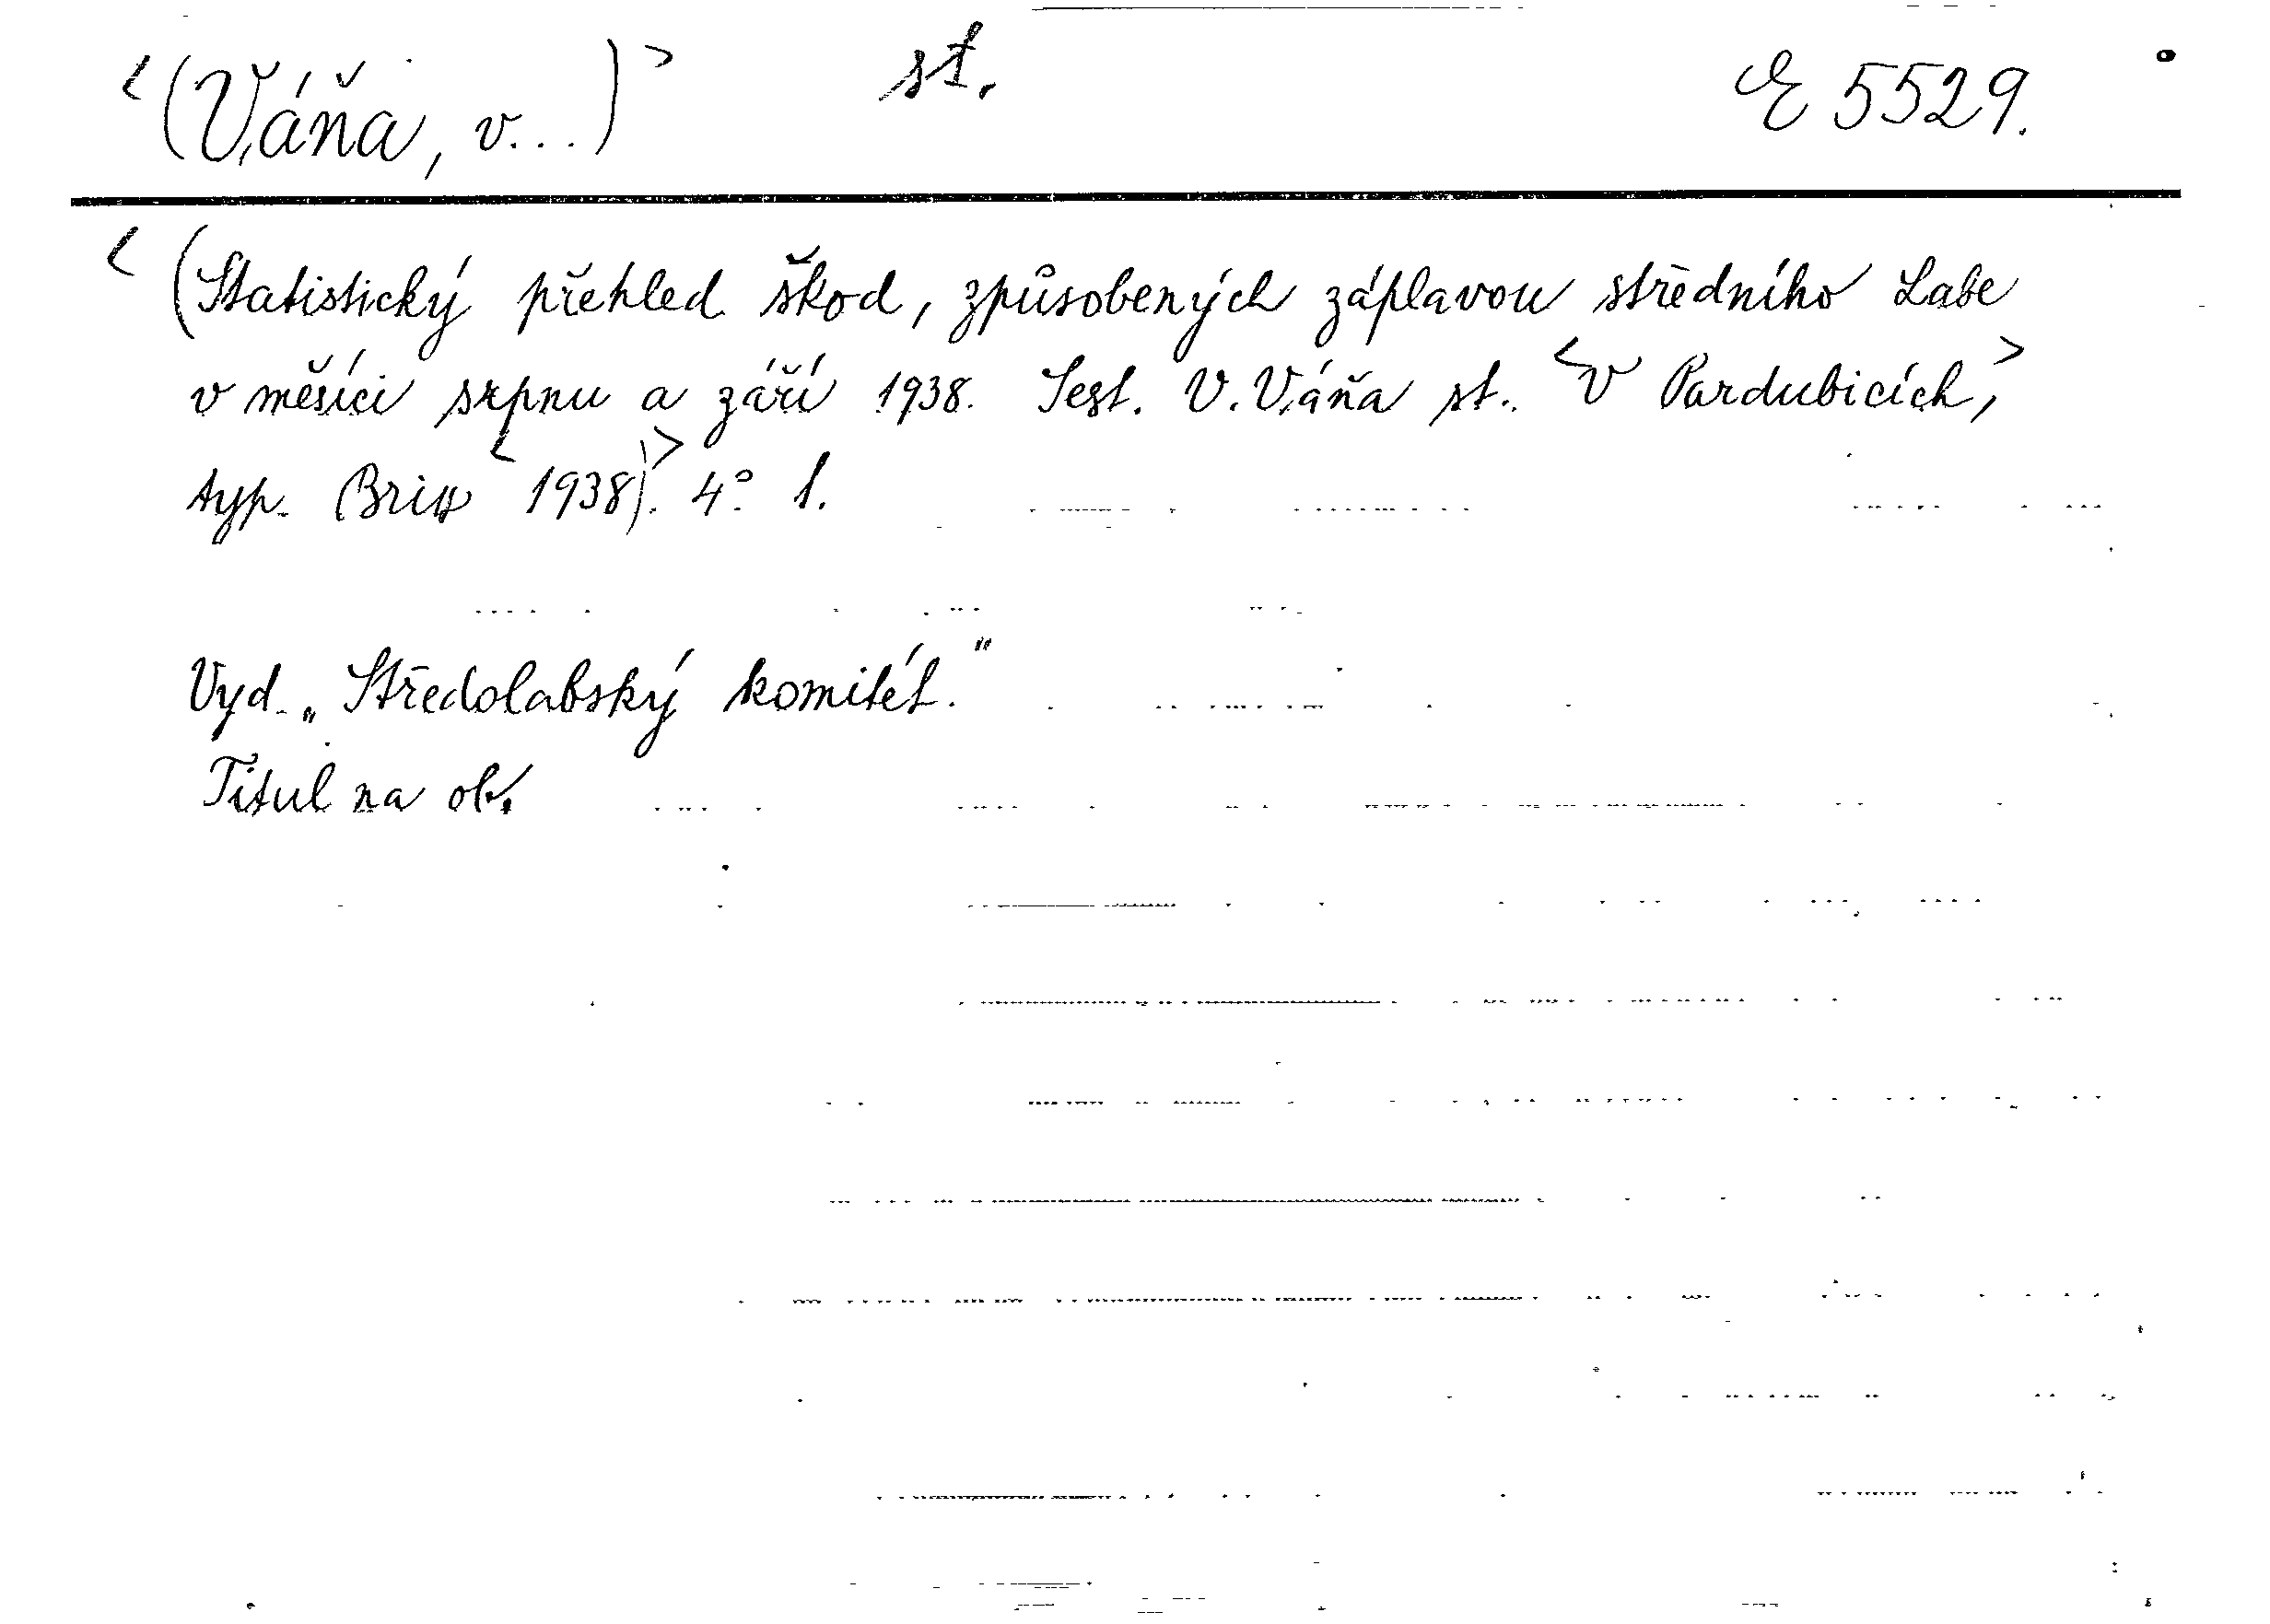 <(Váňa, v...)> st. E 5529.
<(Statistický přehled škod, způsobených záplavou středního Labe
v měsíci srpnu a září 1938. Sest. V. Váňa st. <V Pardubicích,>
typ. <1938)>. 4° l.
Vyd. „Středolabský komitét."
Titul na ob.